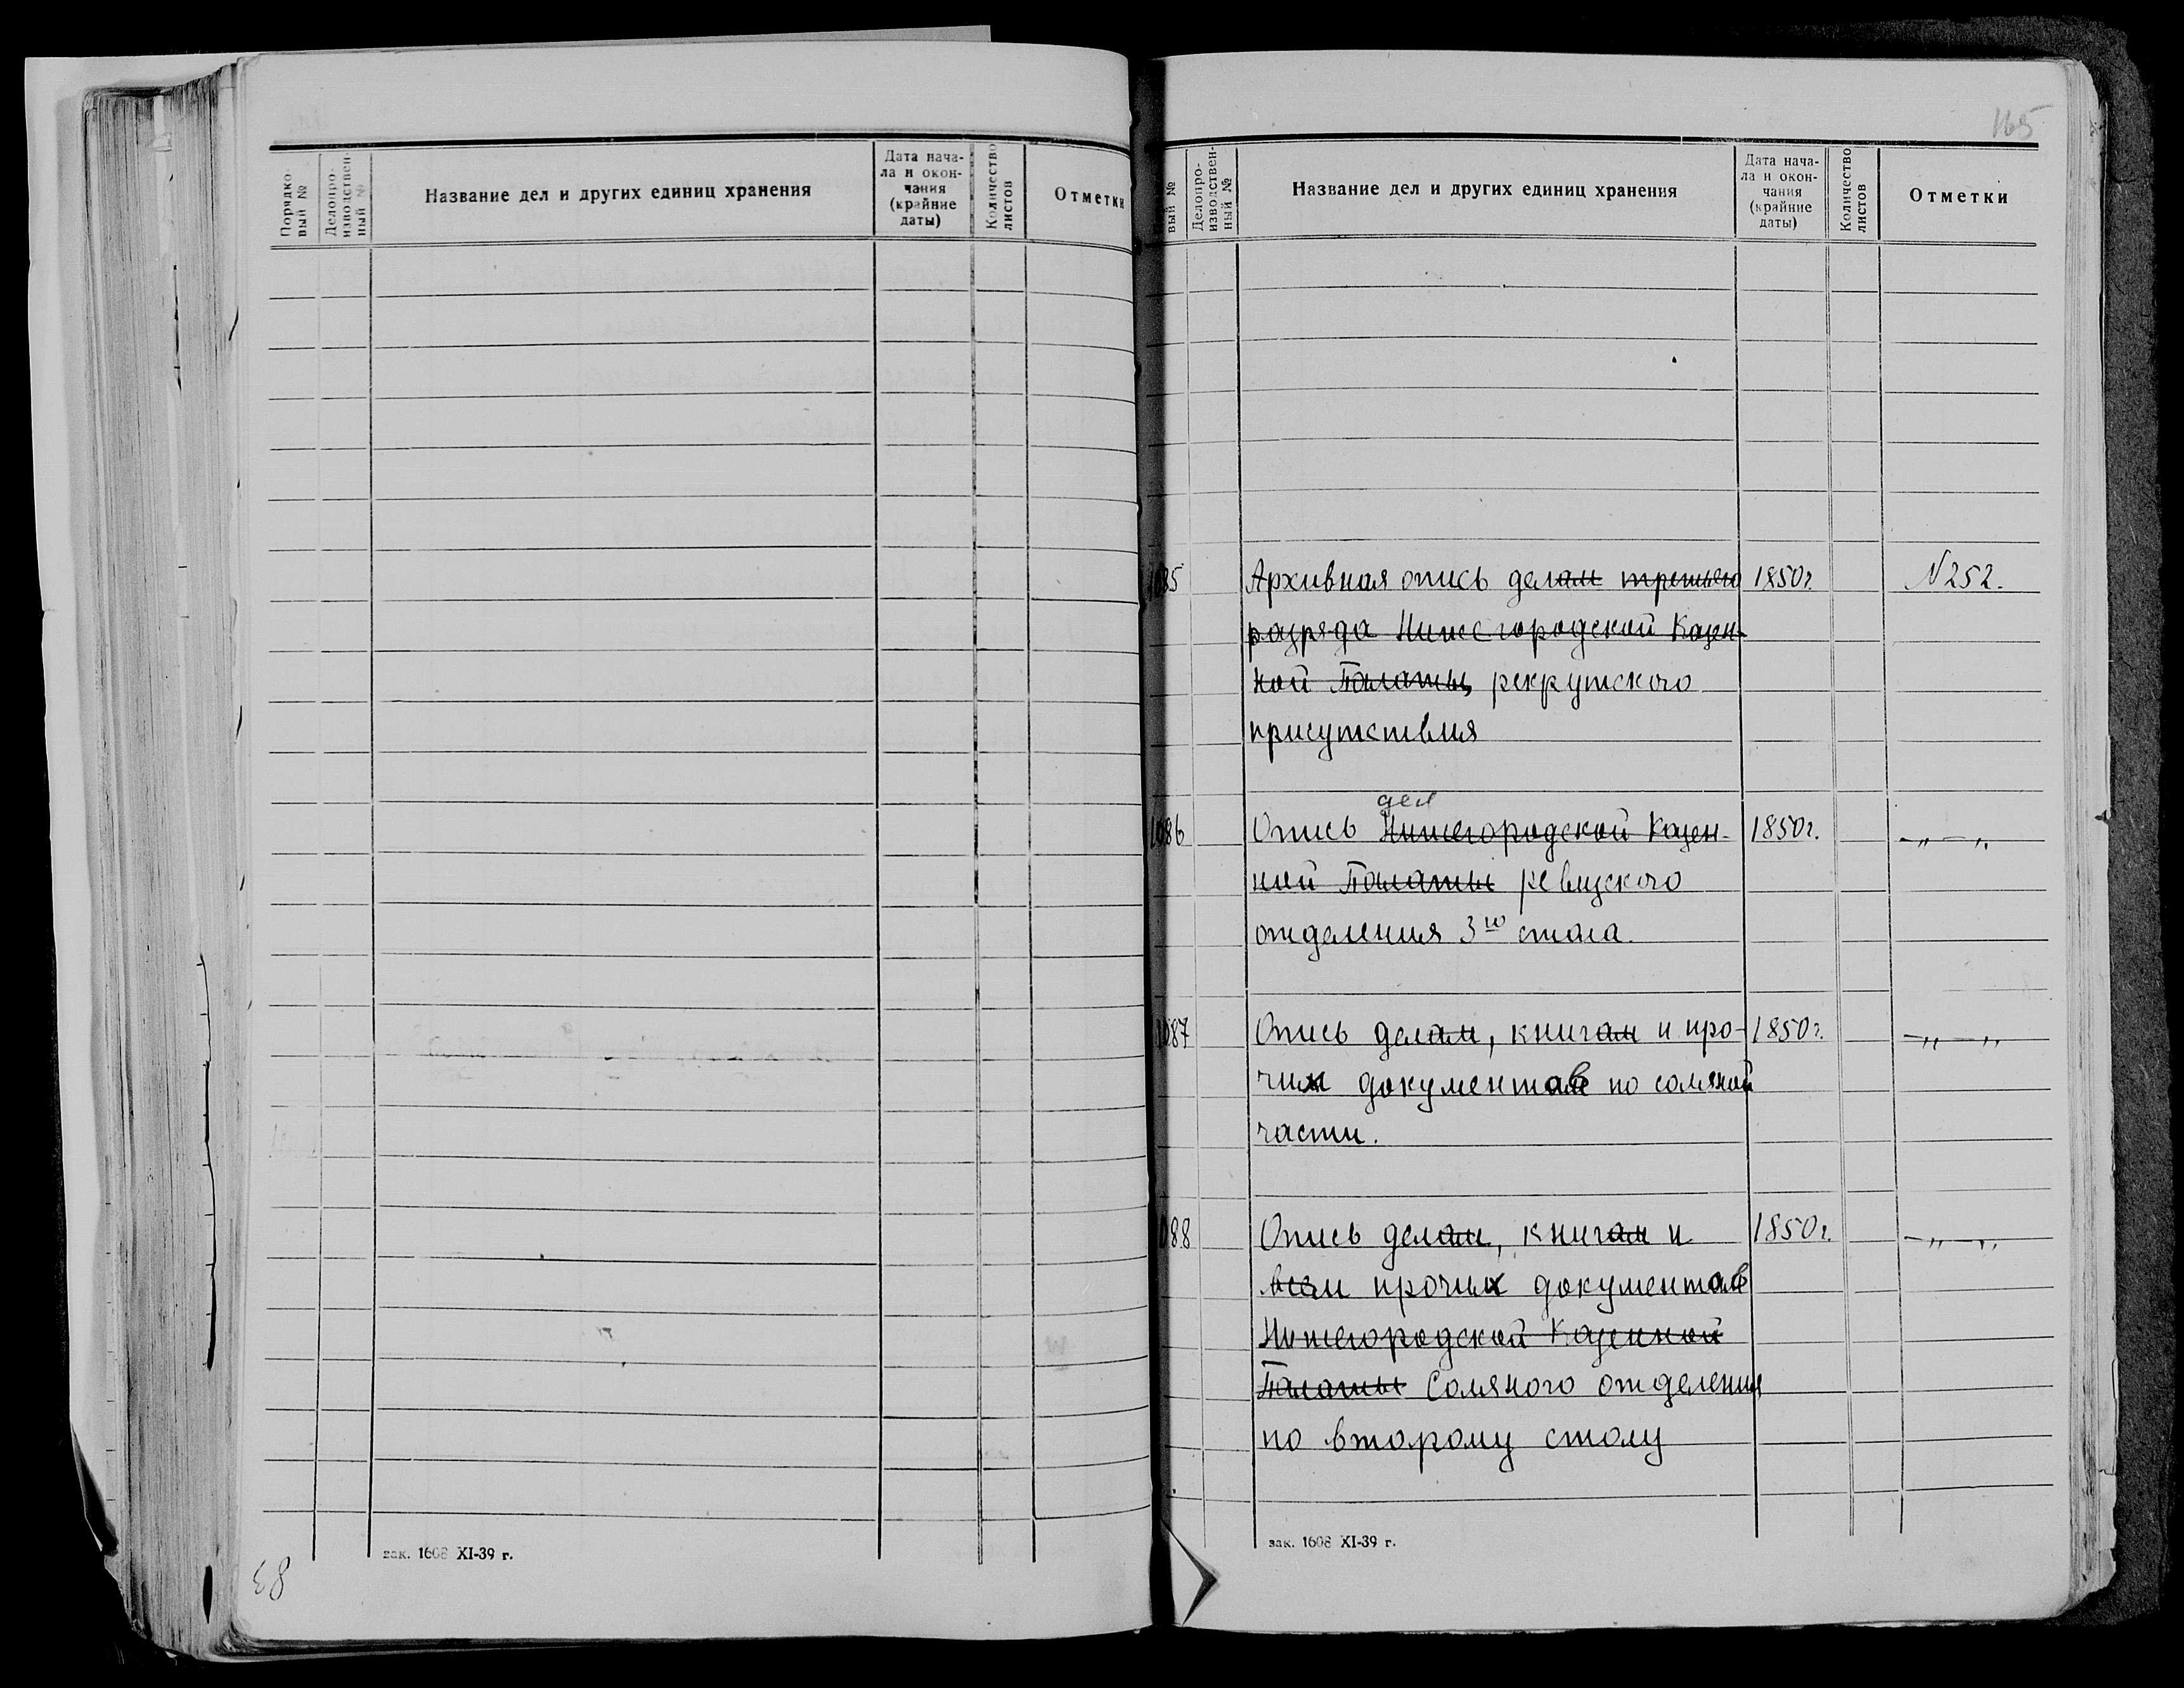 165
Порядко-
вый №
Делопро-
изводствен-
ный №
Название дел и других единиц хранения
Дата нача-
ла и окон-
чания
(крайние
даты)
Количество
листов
Отметки
зак. 1608 XI-39 г.
вый №
Делопро-
изводствен-
ный №
Название дел и других единиц хранения
Дата нача-
ла и окон-
чания
(крайние
даты)
Количество
листов
Отметки
1085 Архивная опись делам третьего 1850г. N252.
разряда Нижегородской Казен-
ной Палаты, рекрутского
присутствия
дел
1086 Опись Нижегородской Казен- 1850г. -„-„
ной Палаты ревизского
отделения 3го стола.
1087 Опись делам, книгам и про- 1850г. -„-„
чих документов по соляной
части.
1088 Опись делам, книгам и 1850г. -„-„
всем прочих документов
Нижегородской Казенной
Палаты Соляного отделения
по второму столу
зак. 1608 XI-39 г.